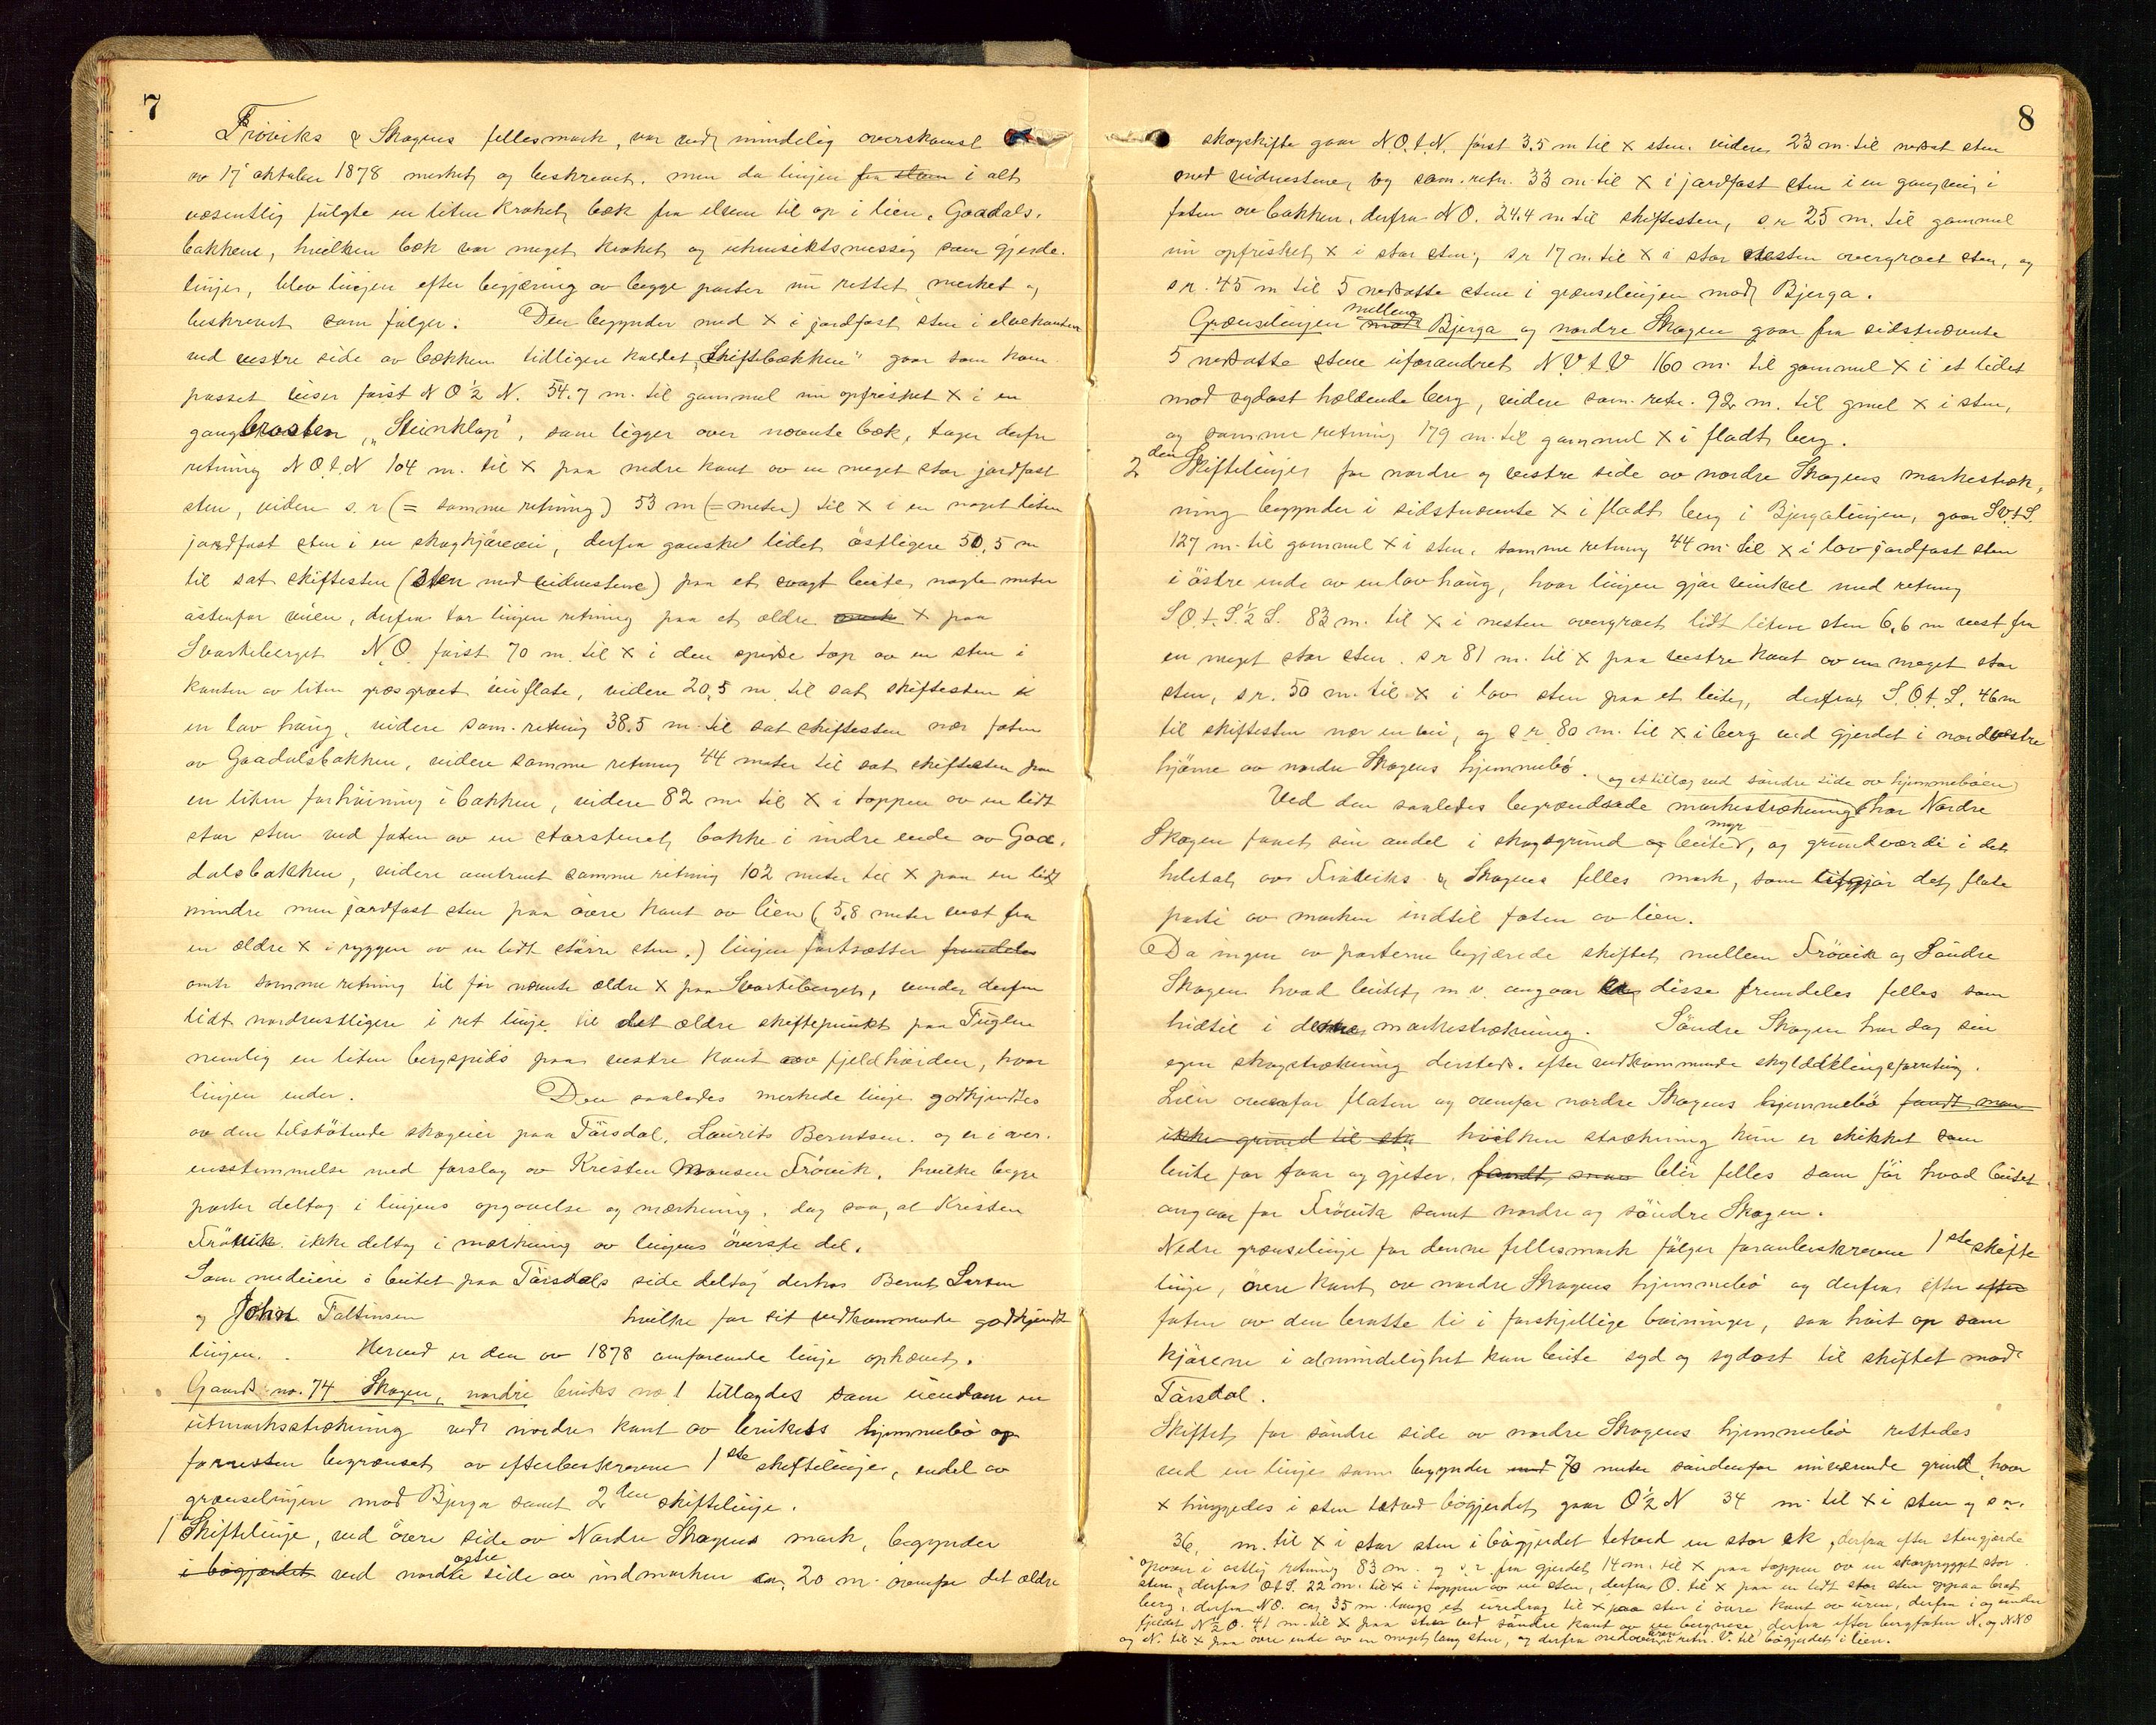 7
Frøviks & Skagens fellesmark, var ved mindelig overskomst
av 17 oktober 1878 merket og beskrevet, men da linjen fra elven i alt
væsentlig fulgte en liten kroket bæk fra elven til op i lien, Gaadals-
bakkene, hvilken bæk var meget kroket og uhensiktsmessig som gjerde-
linjer, blev linjen efter begjæring av begge parter nu rettet, merket og
beskrevet som følger: Den begynder med X i jordfast sten i elvekanten
ved vestre side av bækken tidligere kaldet „Skiftebækken" gaar som kom-
passet viser først N O ½ N. 54.7 m. til gammel nu opfrisket X i en
gangbrosten „Steinklop", som ligger over nævnte bæk, tager derfra
retning N O t N 104 m. til X paa nedre kant av en meget stor jordfast
sten, videre s. r (= samme retning) 53 m (= meter) til X i en noget liten
jordfast sten i en skoghjørevei, derfra ganske lidet østligere 50,5 m
til sat skiftesten (Sten med vidnestene) paa et svagt leite nogle meter
østenfor veien, derfra tar linjen retning paa et ældre X paa
Svarteberget N.O. først 70 m. til X i den spidse top av en sten i
kanten av liten græsgroet flate, videre 20,5 m til sat skiftesten i
en lav haug, videre sam. retning 38.5 m. til sat skiftesten nær foten
av Gaadalsbakken, videre samme retning 44 meter til sat skiftesten paa
en liten forhøining i bakken, videre 82 m til X i toppen av en lidt
stor sten ved foten av en storstenet bakke i indre ende av Gaa-
dalsbakken, videre omtrent samme retning 102 meter til X paa en lidt
mindre men jordfast sten paa øvre kant av lien (5,8 meter vest fra
en ældre X i ryggen av en lidt større sten.) linjen fortsætter fremdeles
omtr samme retning til før nævnte ældre X paa Svarteberget, vender derfra
lidt nordvestligere i ret linje til det ældre skiftepunkt paa Fuglen
nemlig en liten bergspids paa vestre kant av fjeldhøiden, hvor
linjen ender. Den saaledes merkede linje godkjendtes
av den tilstøtende skogeier paa Tørsdal, Laurits Berntsen. og er i over-
ensstemmelse med forslag av Kristen Monsen Frøvik, hvilke begge
parter deltog i linjens opgaaelse og merkning, dog saa, at Kristen
Frøvik ikke deltog i merkning av linjens øverste del.
Som medeiere i beitet paa Tørsdals side deltog derhos Bernt Larsen
og Johan Taltinsen hvilke for sit vedkommende godkjendt
linjen. Herved er den av 1878 omforenede linje ophævet.
Gaards no. 74 Skagen, nordre bruks no 1 tillagdes som eiendom en
utmarksstrækning ved nordre kant av brukets hjemmebø og
forresten begrænset av efterbeskrevne 1ste skiftelinje, endel av
grænselinjen mod Bjerga samt 2den skiftelinje.
1 Skiftelinje, ved øvre side av Nordre Skagens mark, begynder
i bøgjerdet ved nordre østre side av indmarken ca, 20 m. ovenfor det ældre
8
skogskifte gaar N.O.t.N. først 3.5 m til X sten. videre 23 m. til nedsat sten
med vidnestene, og sam. retn. 33 m. til X i jordfast sten i en gangvei i
foten av bakken, derfra N O. 24.4 m til skiftesten, s r 25 m. til gammel
nu opfrisket X i stor sten, s r 17 m. til X i stor næsten overgroet sten, og
s r. 45 m til 5 nedsatte stene i grænselinjen mod Bjerga.
Grænselinjen mod mellem Bjerga og nordre Skagen gaar fra sidstnævnte
5 nedsatte stene uforandret N V t V 160 m. til gammel X i et lidet
mod sydost hældende berg, videre sam. retn. 92 m. til gmel X i sten,
og samme retning 179 m. til gammel X i fladt berg.
2den Skiftelinje for nordre og vestre side av nordre Skagens markestræk-
ning begynder i sidstnævnte X i fladt berg i Bjergalinjen, gaar S V t S.
127 m. til gammel X i sten. samme retning 44 m. til X i lav jordfast sten
i østre ende av en lav haug, hvor linjen gjør vinkel med retning
S O t. S. ½ S. 83 m. til X i nesten overgroet lidt liten sten 6,6 m vest fra
en meget stor sten. s r 81 m. til X paa vestre kant av en meget stor
sten, s r. 50 m. til X i lav sten paa et leite, derfra S. O. t. S. 46 m
til skiftesten nær en vei, og s r 80 m. til X i berg ved gjerdet i nordvestre
hjørne av nordre Skagens hjemmebø. (og et tillæg ved søndre side av hjemmebøen)
Ved den saaledes begrændsede markestrækning har Nordre
Skagen faaet sin andel i skogsgrund og beite, myr og grundværdi i det
heletat av Frøviks & Skagens felles mark, som utgjør det flate
parti av marken indtil foten av lien.
Da ingen av parterne begjærede skiftet mellem Frøvik og Søndre
Skagen hvad beitet m.v. angaar disse fremdeles felles som
hidtil i denne markestrækning. Søndre Skagen har dog sin
egen skogstrækning dersteds. efter vedkommende skylddelingsforretning.
Lien ovenfor flaten og ovenfor nordre Skagens hjemmebø fandt man
ikke grund til at hvilken strækning kun er skikket som
beite for faar og gjeter. fandt man blir felles som før hvad beitet
angaar for Frøvik samt nordre og søndre Skagen.
Nedre grænselinje for denne fellesmark følger foranbeskrevne 1ste skifte
linje, øvre kant av nordre Skagens hjemmebø og derfra efter efter
foten av den bratte li i forskjellige bøininger, saa høit op som
kjørene i almindelighet kan beite syd og sydost til skiftet mod
Tørsdal.
Skiftet for søndre side av nordre Skagens hjemmebø rettedes
ved en linje som begynder med 70 meter søndenfor nuværende grind, hvor
X huggedes i sten tætved bøgjerdet, gaar O ½ N 34 m. til X i sten og s r.
36, m. til X i stor sten i bøgjerdet tetved en stor ek, derfra efter stengjerde
opover i østlig retning 83 m. og s. r fra gjerdet 14 m. til X paa toppen av en skarprygget stor
sten, derfra O t S. 22 m. til X i toppen av en sten, derfra O. til X paa en lidt stor sten oppaa brat
berg, derfra N O. ca, 35 m. langs et uredrag til X paa sten i øvre kant av uren, derfra i og under
fjeldet N ½ O. 41 m. til X paa sten ved søndre kant av en bergnese, derfra efter bergfoten N. og N N O
og N. til X paa øvre ende av en meget lang sten, og derfra nedover i retn. V. til bøgjerdet i lien.